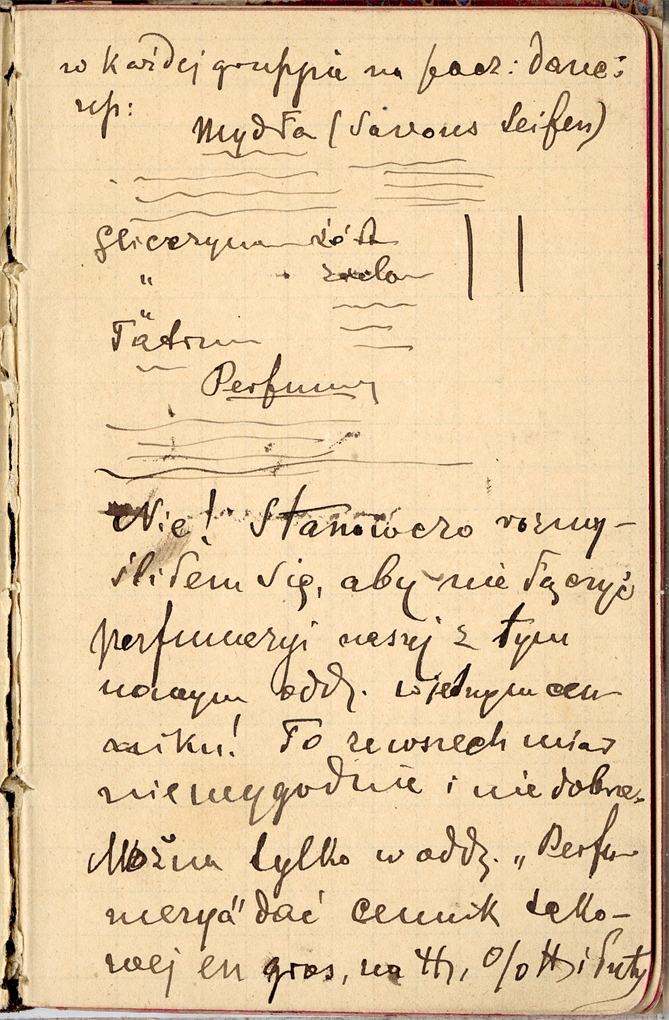 w każdej gruppie na pocz: dane:
np:
Mydła (Savons Seifen)
Gliceryna żółt
" zielon
"
Perfumy
Nie! Stanowczo rozmy-
śliłem się, aby nie łączyć
perfumeryi naszej z tym
nowym oddz. w jednym cen-
niku! To ze wszech miar
niewygodnie i niedobrze.
Można tylko w oddz. „Perfu-
merya" dać cennik tako-
wej en gros, na